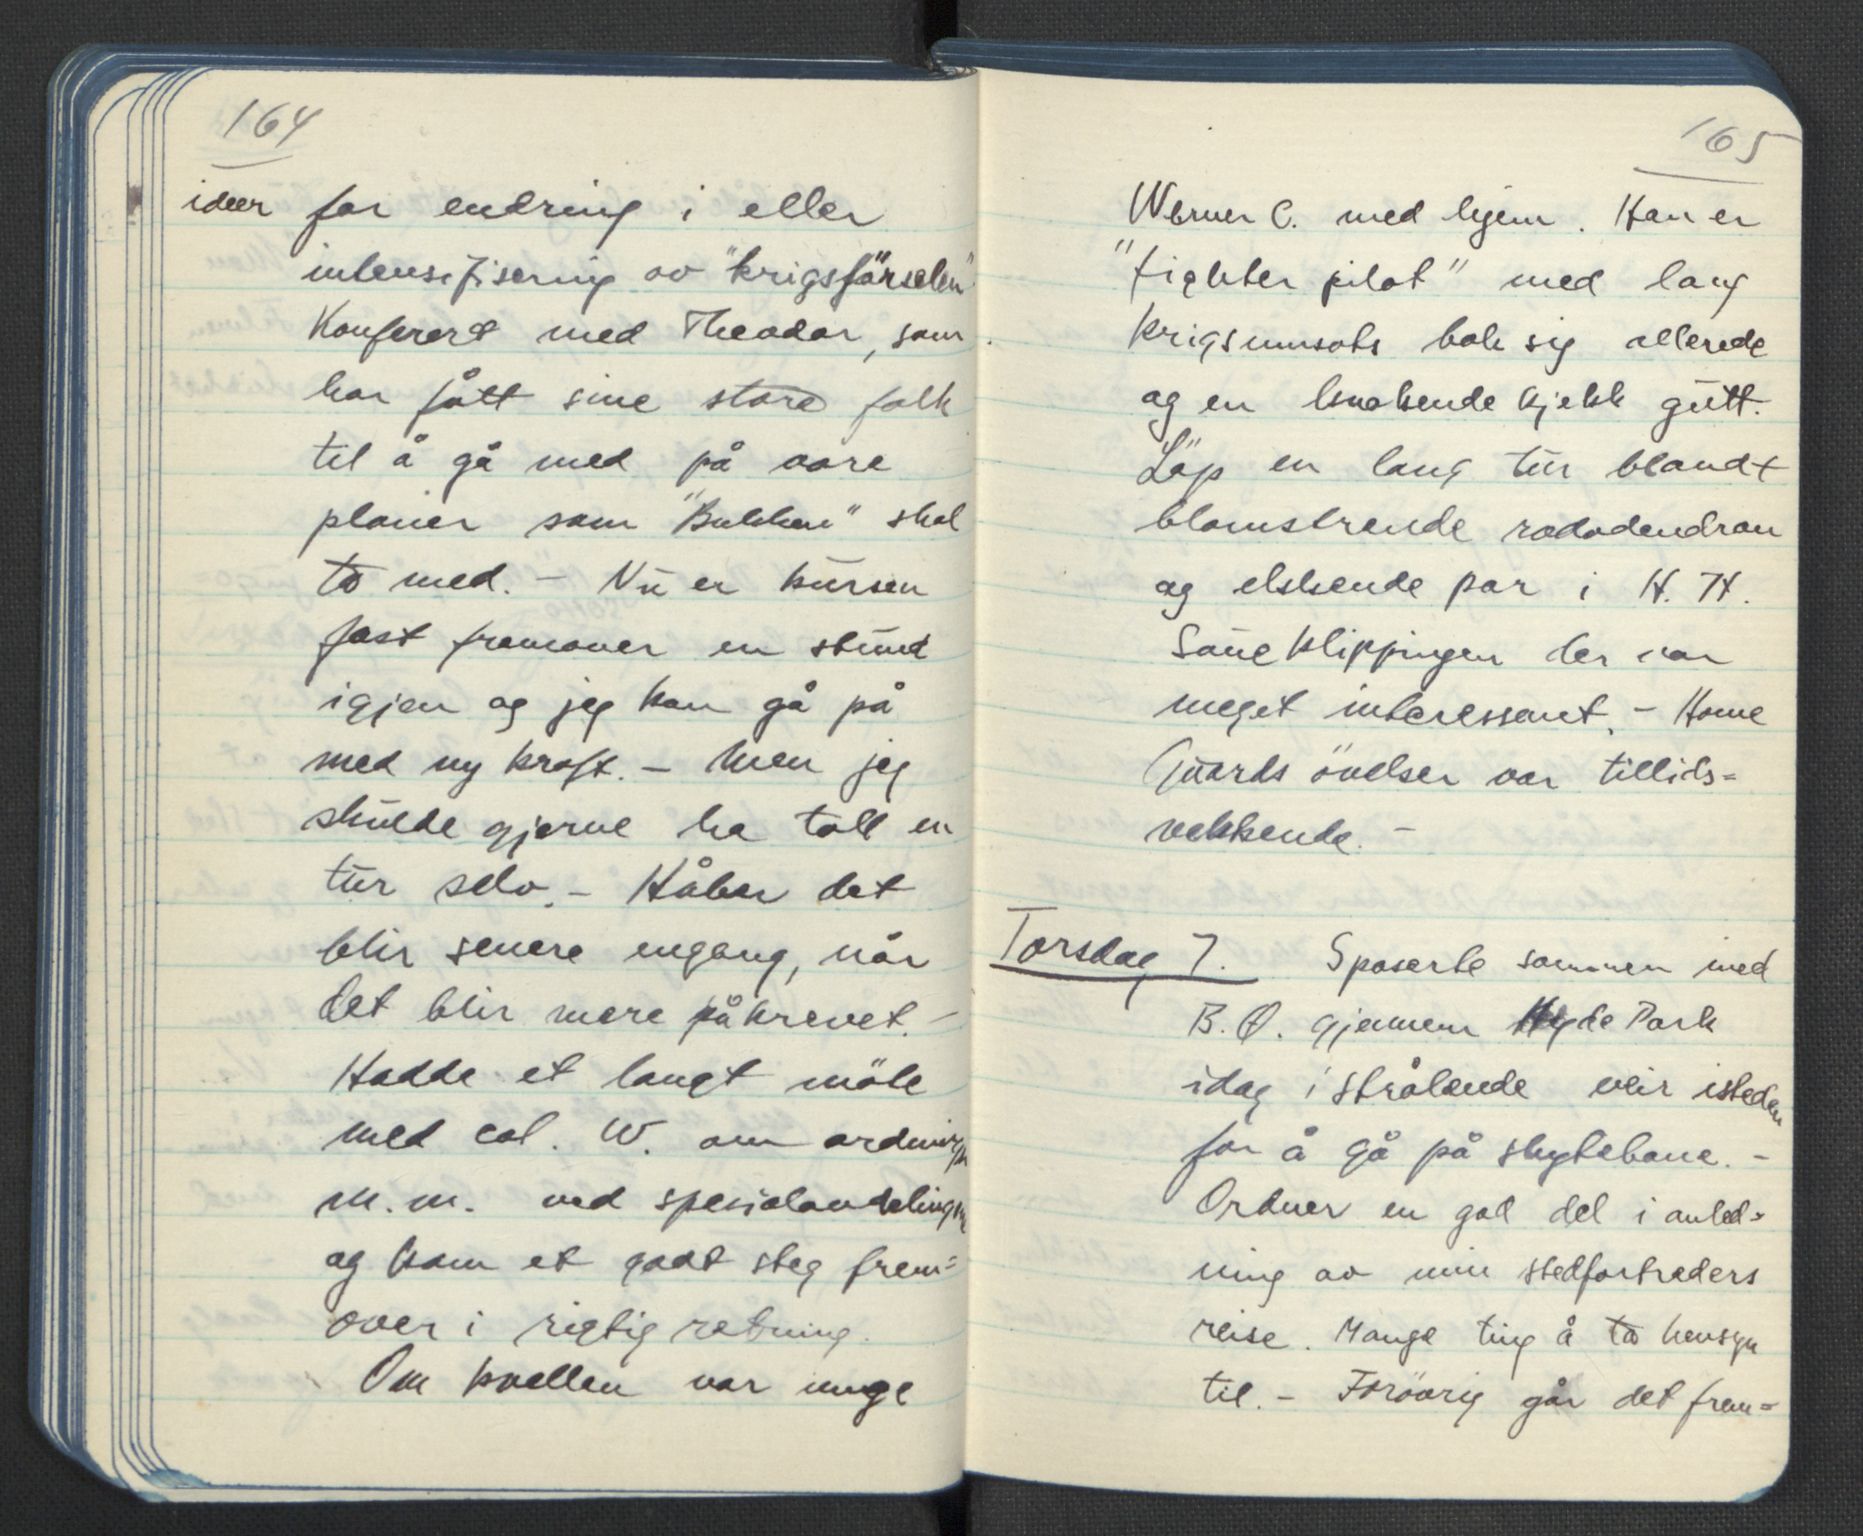 164
ideer for endring i eller
intensifisering av "krigsförselen"
Konferert med Theodor, som
har fått sine store folk
til å gå med på våre
planer som "Bukken" skal
ta med. - Nu er kursen
fast fremover en stund
igjen og jeg kan gå på
med ny kraft. - Men jeg
skulde gjerne ha tatt en
tur selv. - Håber det
blir senere engang, når
det blir mere påkrevet. -
Hadde et langt möte
med col. W. om ordningen
m.m. ved spesialavdelingen
og kom et godt steg frem=
over i rigtig retning.
Om kvellen var unge
165
Werner C. med hjem. Han er
"fighter pilot" med lang
krigsinnsats bak sig allerede
og en knakende kjekk gutt.
Löp en lang tur blandt
blomstrende rododendron
og elskende par i H. H.
Saueklippingen der var
meget interessant. - Home
Guards övelser var tillids=
vekkende. -
Torsdag 7. Spaserte sammen med
B. Ø. gjennem Hyde Park
idag i strålende veir isteden
for å gå på skytebane. -
Ordner en god del i anled=
ning av min stedfortreders
reise. Mange ting å ta hensyn
til. - Forövrig går det frem=